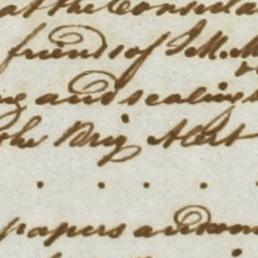 at the Consula
friends of J. M. M
ng and sealing
the Brig Alert
. . . . .
papers and com